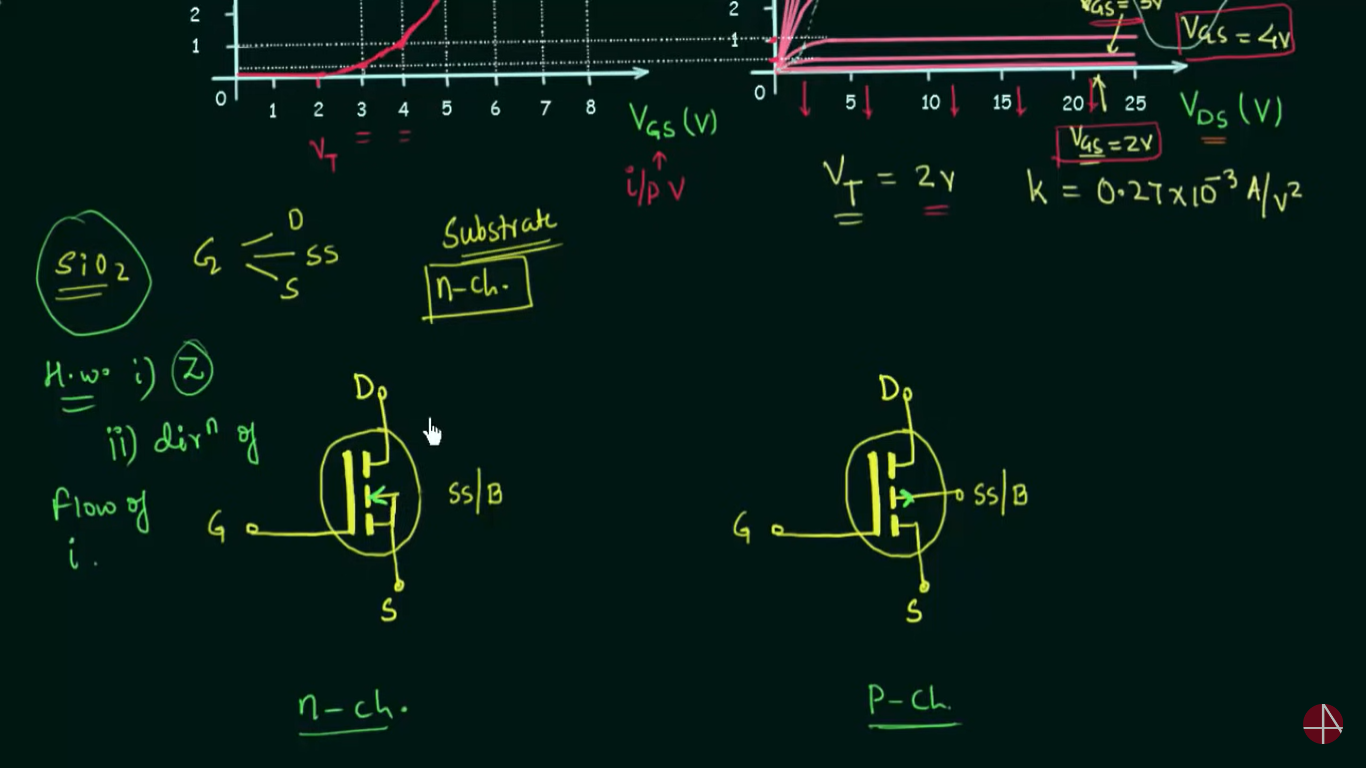 2
1
0
1 2 3 4 5 6 7 8
V_T = =
V_GS (V)
i/p V
2
1
0
5 10 15 20 25
V_DS (V)
V_GS = 4V
V_GS = 2V
V_T = 2V
k = 0.27×10⁻³ A/V²
SiO₂
G
D
SS
S
Substrate
n-ch.
H.W. i) Z
ii) dirⁿ of
flow of
i.
D
G
SS/B
S
n-ch.
D
G
SS/B
S
P-Ch.